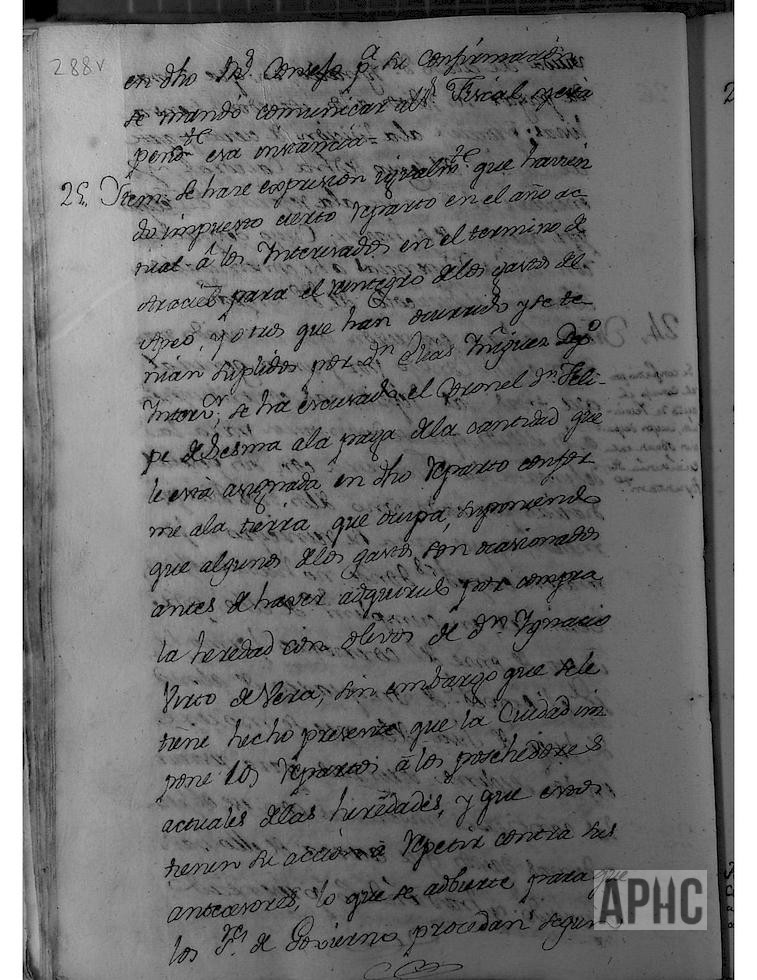 288v
en dho Rl Consejo pa. su confirmación
se mandó comunicar al Sr. Fiscal, y está
pendte esa instancia =
25. Item: Se hace expresion igualmte. que havien
do impuesto cierto reparto en el año ac
tual â los Interesados en el termino de
para el reintegro delos gastos de
Apeo, y otros que han ocurrido y se te
nian suplidos por dn. Elias Iñiguez
se ha escusado el Coronel dn. Feli-
pe deLesma ala paga dela cantidad que
le está asignada en dho reparto confor
me ala tierra que ocupa, suponiendo
que algunos delos gastos son ocasionados
antes de haver adquirido por compra
la heredad con olivos de dn. Ygnacio
Virto de Vera, sin embargo que sele
tiene hecho presente que la Ciudad im
pone los repartos â los poschedores
actuales delas heredades, y que estos
tienen su acción a repetir contra sus
antecesores, lo que se adbierte para que
los Ss. de Govierno procedan segun
APHC